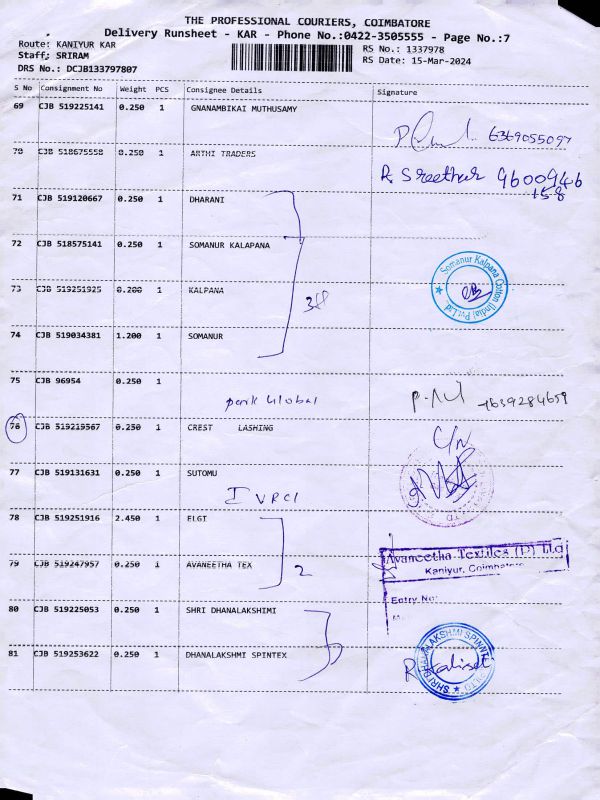 THE PROFESSIONAL COURIERS, COIMBATORE
Delivery Runsheet - KAR - Phone No.:0422-3505555 - Page No.:7
Route: KANIYUR KAR RS No.: 1337978
Staff: SRIRAM RS Date: 15-Mar-2024
DRS No.: DCJB133797807
S No Consignment No Weight PCS Consignee Details Signature
69 CJB 519225141 0.250 1 GNANAMBIKAI MUTHUSAMY
6369055097
70 CJB 518675558 0.250 1 ARTHI TRADERS
R. Sreethar 9600946
158
71 CJB 519120667 0.250 1 DHARANI
72 CJB 518575141 0.250 1 SOMANUR KALAPANA
Somanur Kalpana Cotton (India) Pvt Ltd.
73 CJB 519251925 0.200 1 KALPANA
74 CJB 519034381 1.200 1 SOMANUR
75 CJB 96954 0.250 1
Park Global
76 CJB 519219567 0.250 1 CREST LASHING
C/N
77 CJB 519131631 0.250 1 SUTOMU
I VRCI
78 CJB 519251916 2.450 1 ELGI
79 CJB 519247957 0.250 1 AVANEETHA TEX 2
Avaneetha Textiles (P) Ltd
Kaniyur, Coimbatore
Entry No:
80 CJB 519225053 0.250 1 SHRI DHANALAKSHIMI
81 CJB 519253622 0.250 1 DHANALAKSHMI SPINTEX